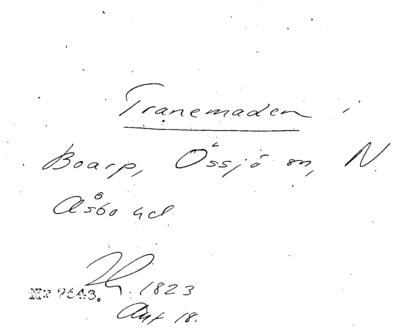 Tranemaden i
Boarp, Össjö sn, N
Åsbo hd
Nr 7643. 1823
Aug 18.